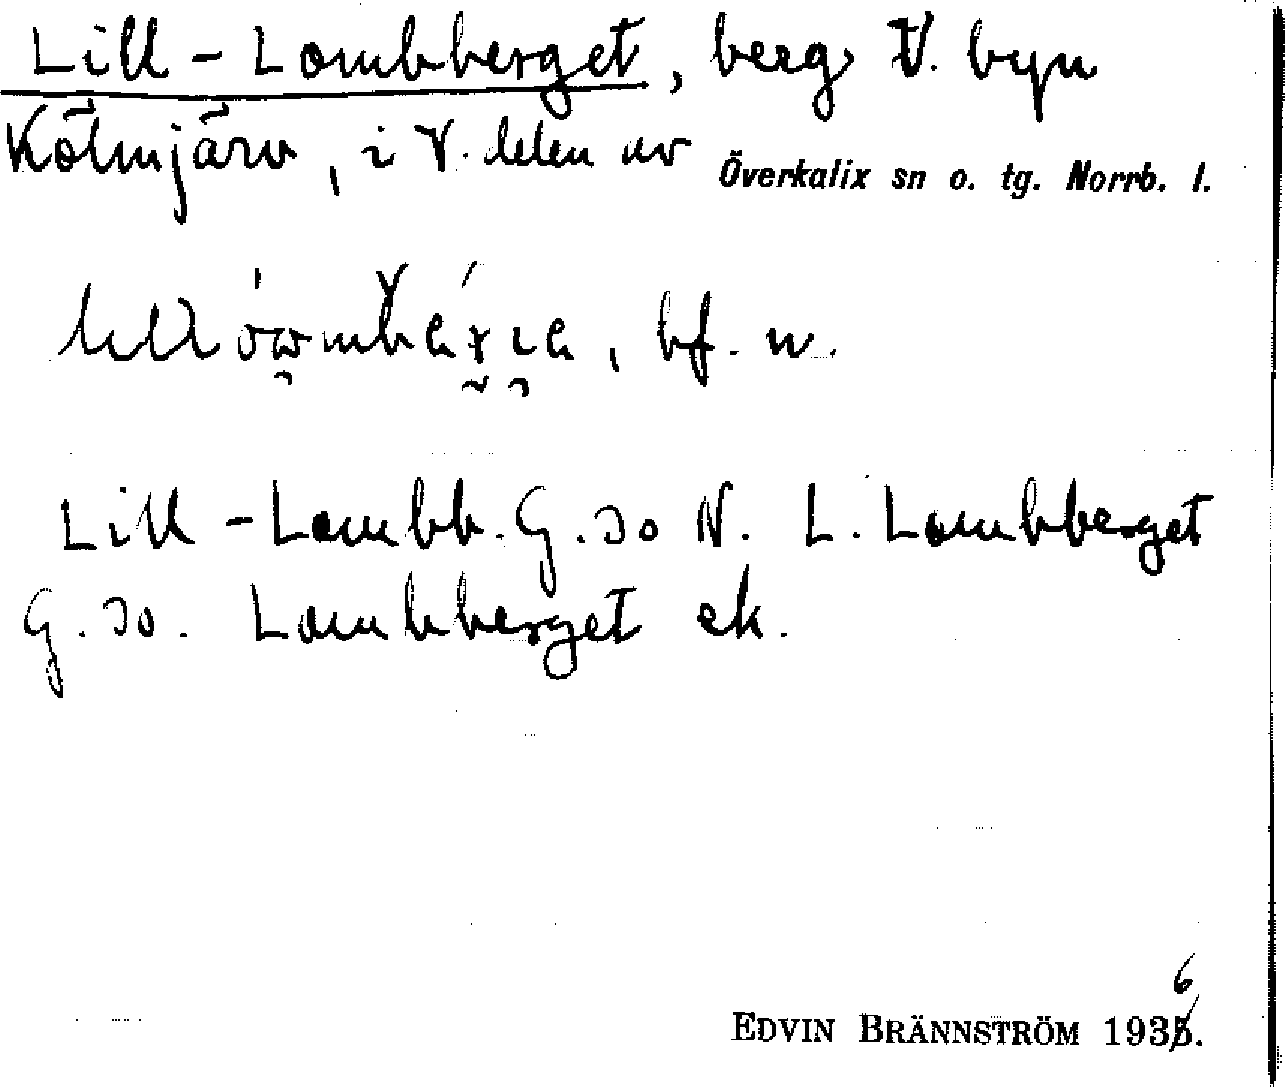 Lill-Lombberget, berg V. byn
Kölmjärv, i V. delen av Överkalix sn o. tg. Norrb. l.
bf. n.
Lill-Lombb. G. 30 N. L. Lombberget
G. 30. Lombberget ek.
EDVIN BRÄNNSTRÖM 1936.